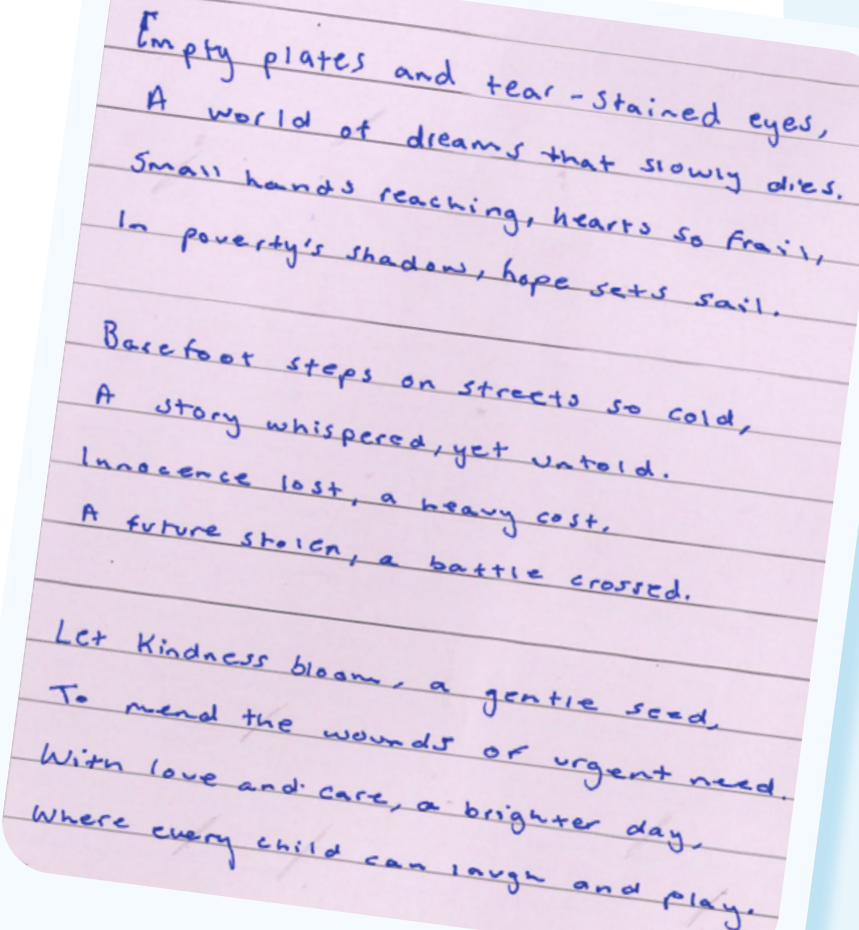 Empty plates and tear-stained eyes,
A world of dreams that slowly dies.
Small hands reaching, hearts so frail,
In poverty's shadow, hope sets sail.
Barefoot steps on streets so cold,
A story whispered, yet untold.
Innocence lost, a heavy cost,
A future stolen, a battle crossed.
Let Kindness bloom, a gentle seed,
To mend the wounds of urgent need.
With love and care, a brighter day,
Where every child can laugh and play.